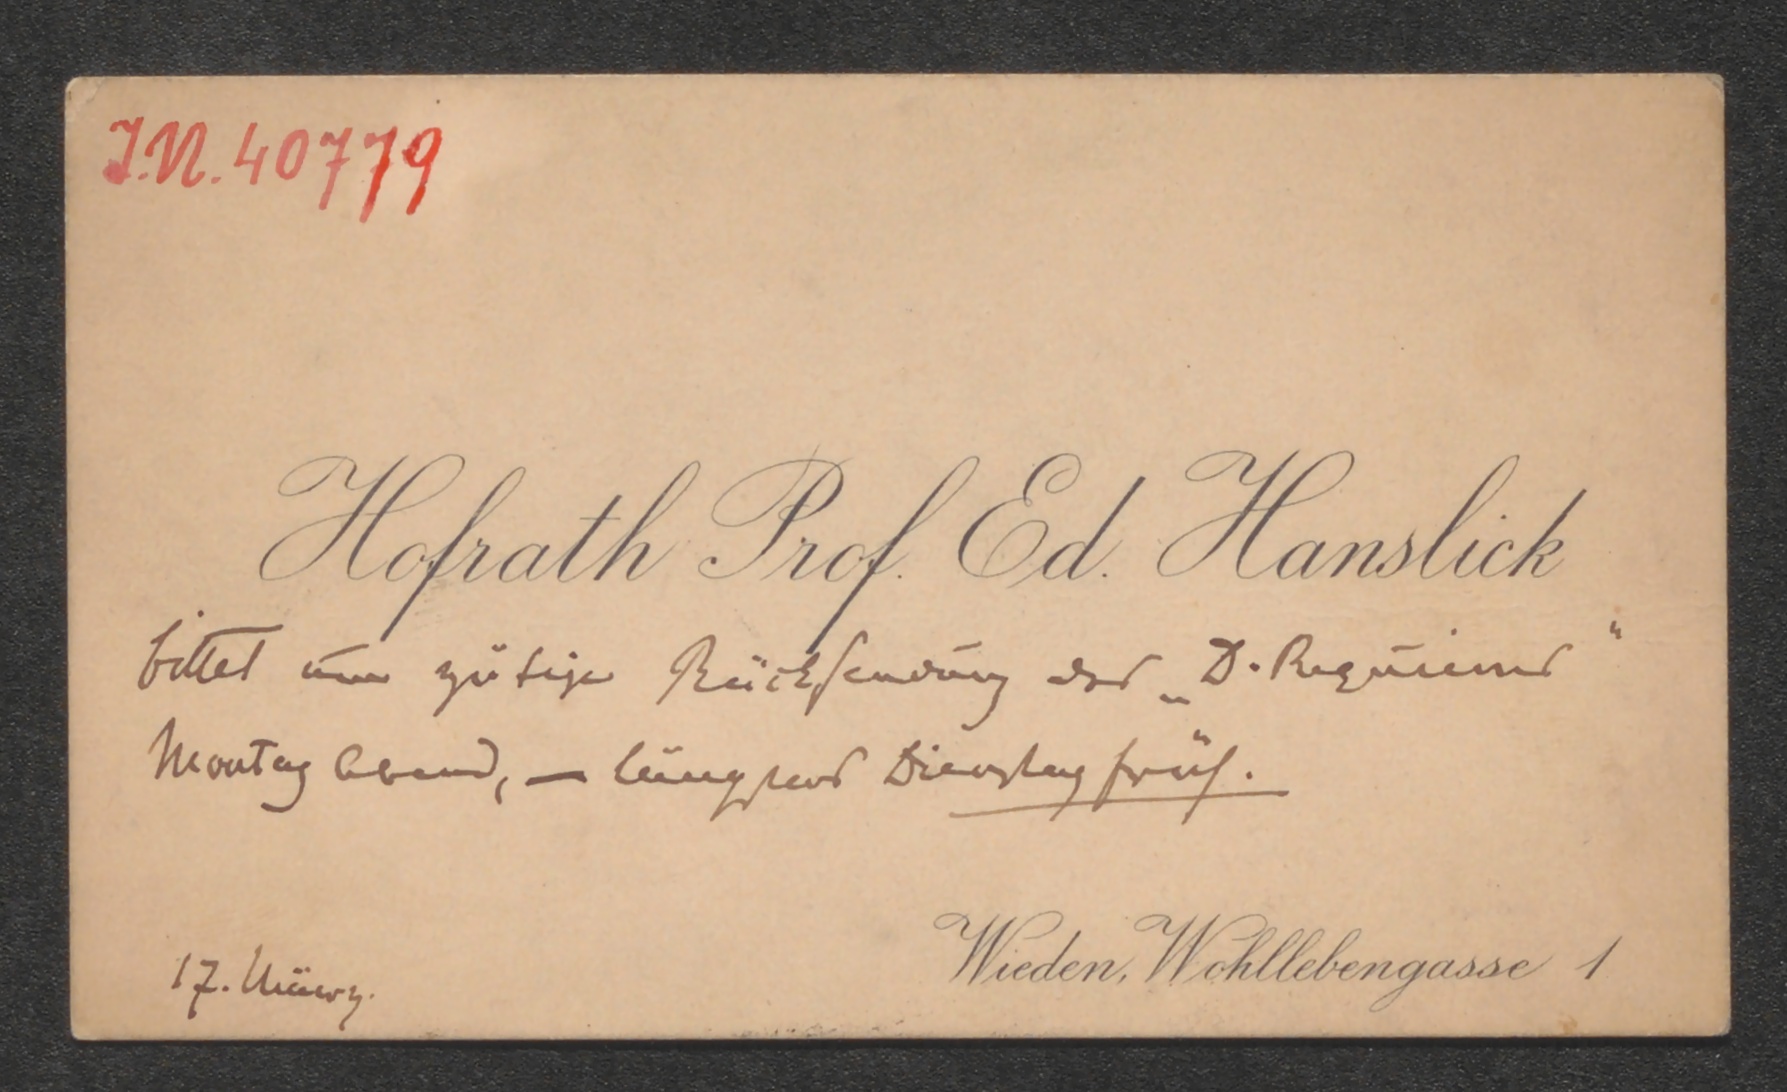 J.N. 40779
Hofrath Prof. Ed. Hanslick
bittet um gütige Rücksendung des „D. Requiems“
Montag Abend, – längstens Dienstag früh.
17. März.
Wieden, Wohllebengasse 1